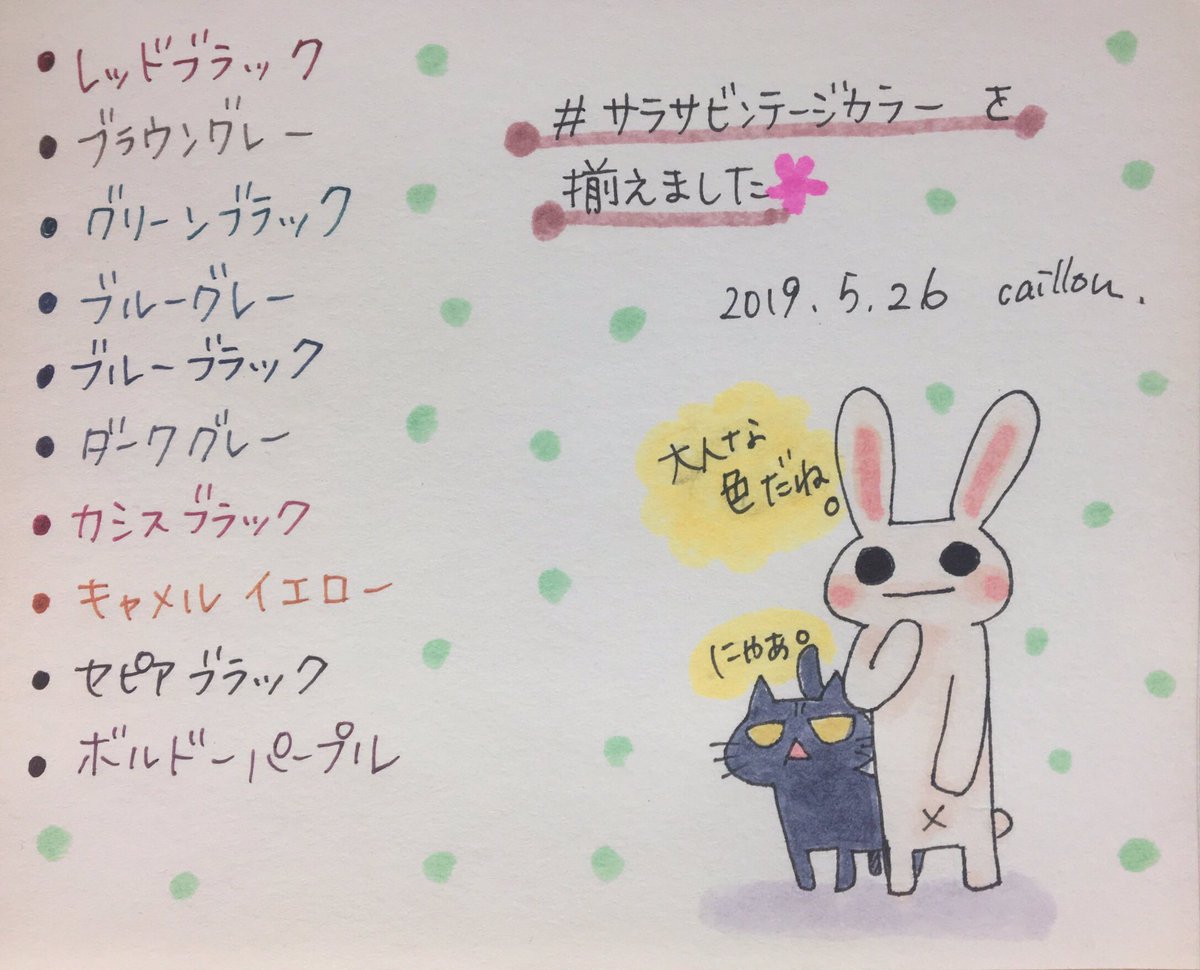 レッドブラック
ブラウングレー
グリーンブラック
ブルーグレー
ブルーブラック
ダークグレー
カシスブラック
キャメルイエロー
セピアブラック
ボルドーパープル
#サラサビンテージカラー を
揃えました
2019.5.26 caillou.
大人な
色だね。
にゃあ。